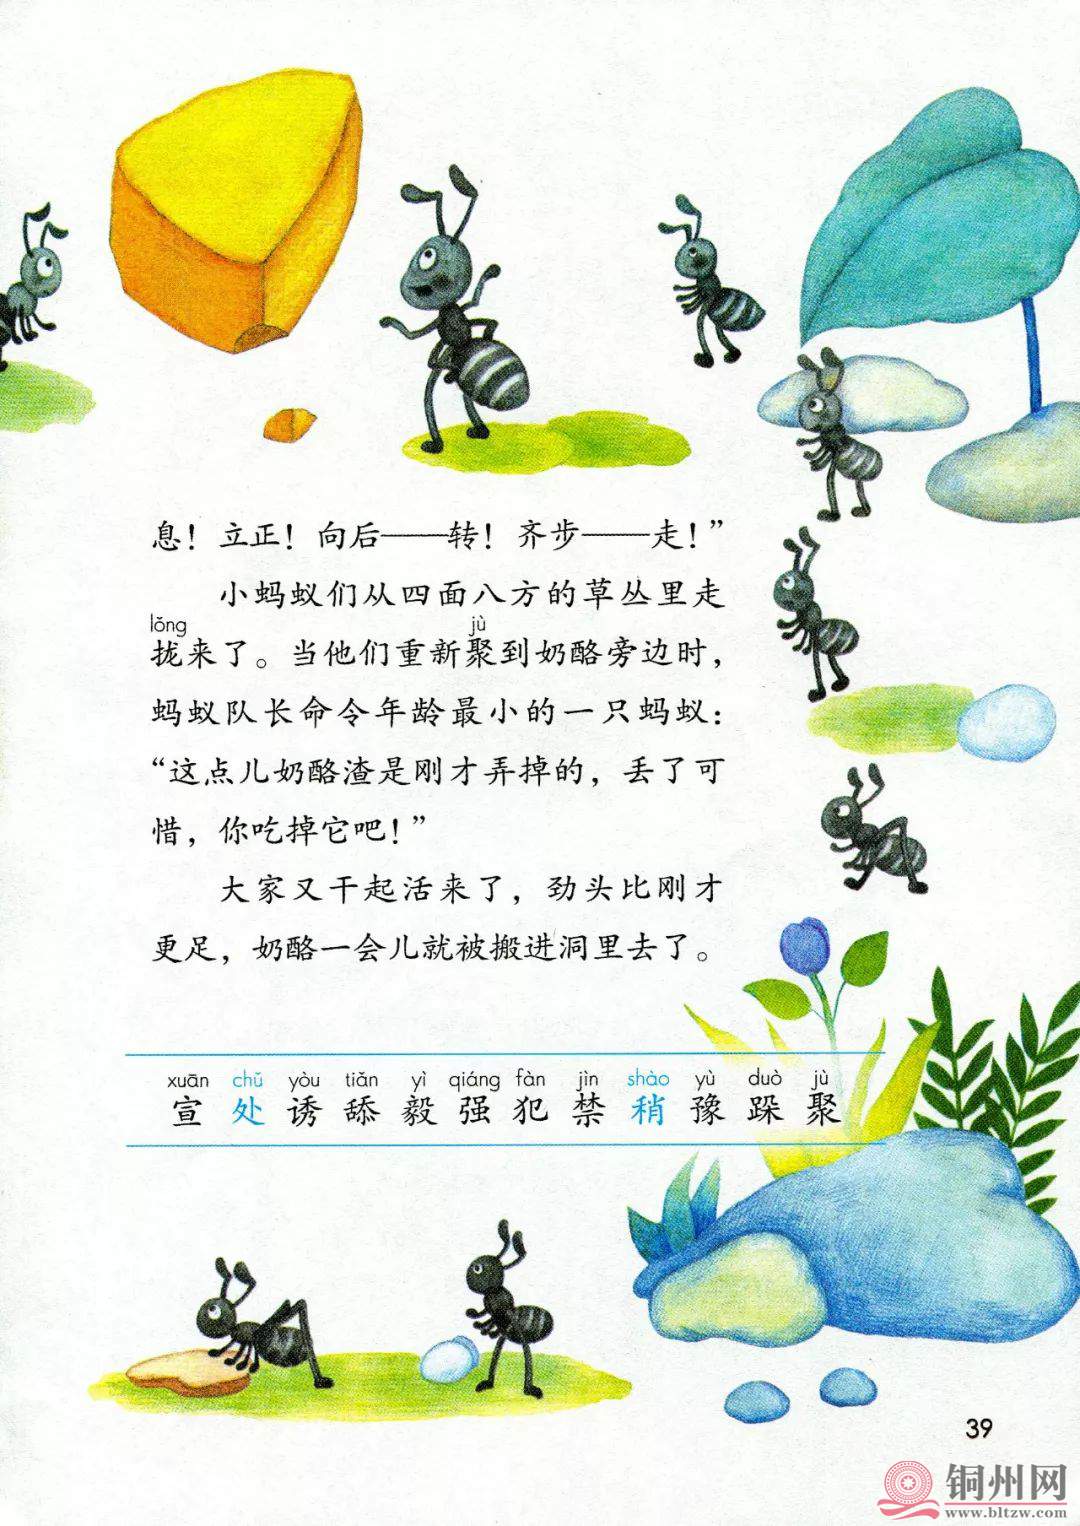 息！立正！向后——转！齐步——走！”
小蚂蚁们从四面八方的草丛里走
lǒng jù
拢来了。当他们重新聚到奶酪旁边时，
蚂蚁队长命令年龄最小的一只蚂蚁：
“这点儿奶酪渣是刚才弄掉的，丢了可
惜，你吃掉它吧！”
大家又干起活来了，劲头比刚才
更足，奶酪一会儿就被搬进洞里去了。
xuān chǔ yòu tiǎn yì qiáng fàn jìn shào yù duò jù
宣 处 诱 舔 毅 强 犯 禁 稍 豫 跺 聚
39
铜州网
www.bltzw.com